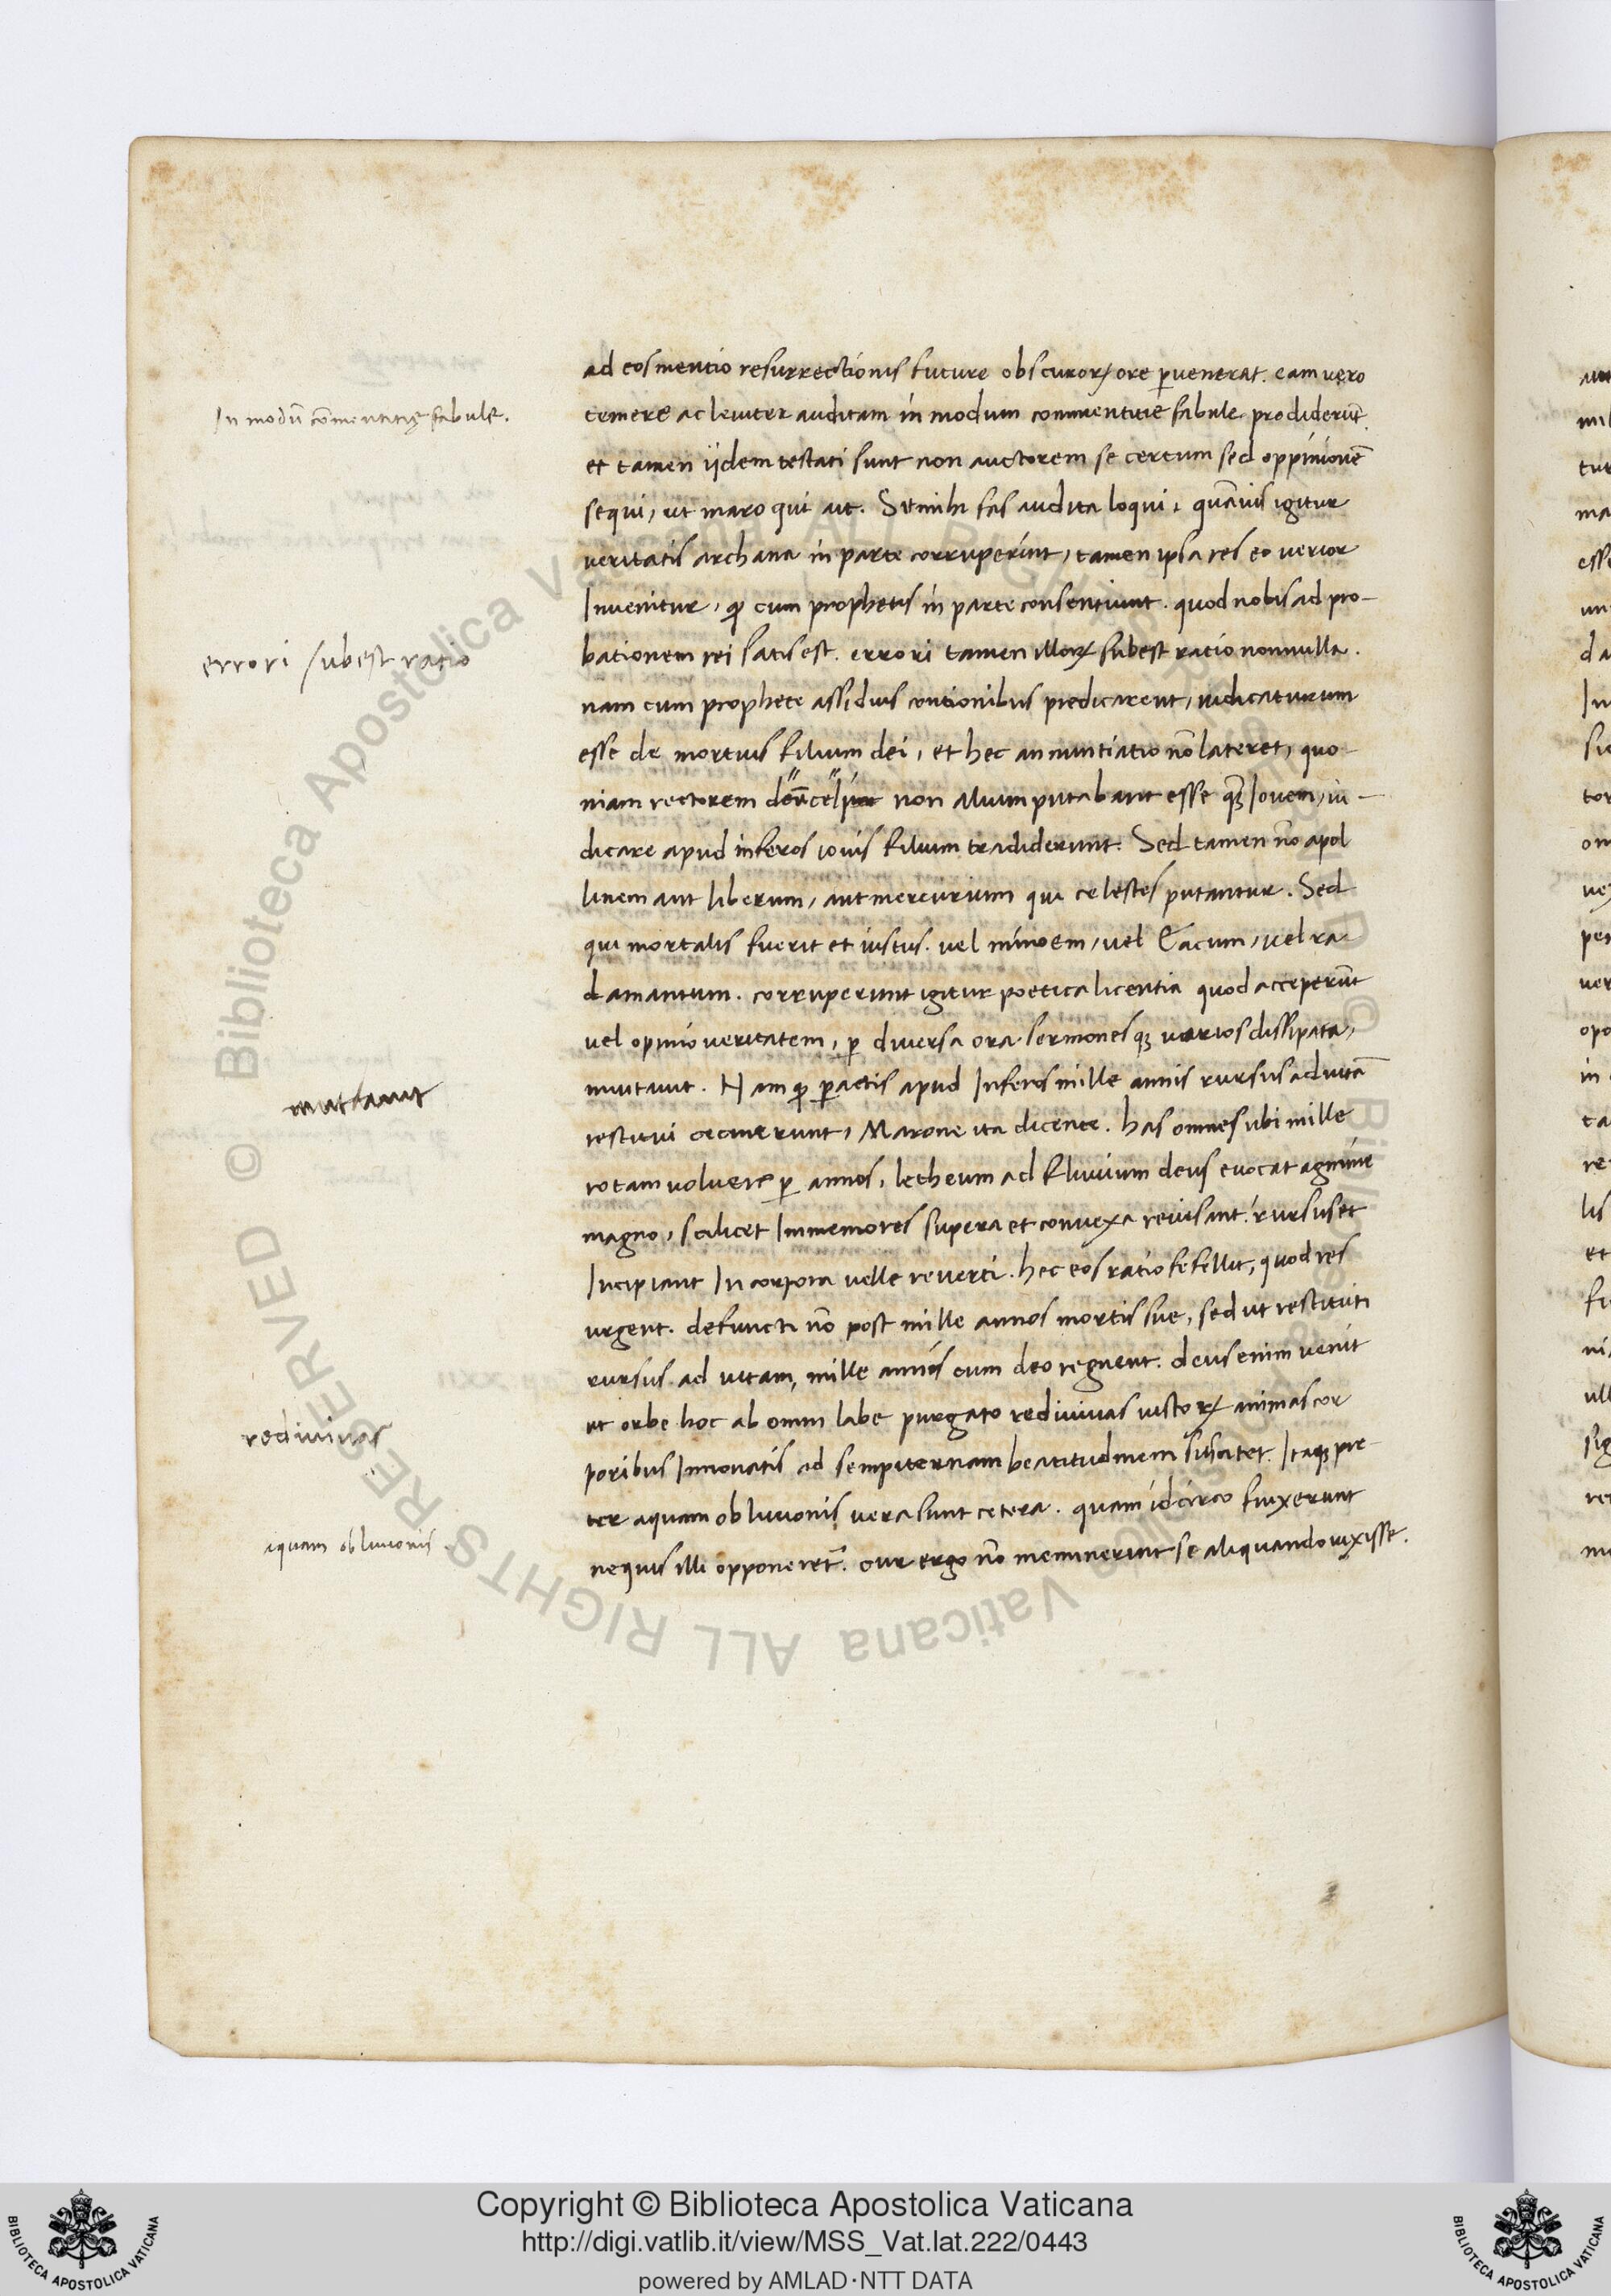 ad eos mentio resurrectionis future obscuroꝝ ore ꝑvenerat. eam vero
In modū cōmentatię fabulę.
temere ac leviter auditam in modum commentitie fabule prodiderūt.
et tamen ijdem testati sunt non auctorem se certum sed oppinionē
sequi, ut maro qui ait. Sit mihi fas audita loqui, quāvis igitur
veritatis archana in parte corruperint, tamen ipsa res eo verior
Invenitur, ꝙ cum prophetis in parte consentiunt. quod nobis ad pro-
errori subest ratio
bationem rei satis est. errori tamen illoꝝ subest ratio nonnulla.
nam cum prophete assiduis contionibus predicarent, iudicaturum
esse de mortuis filium dei, et hec annuntiatio nō lateret, quo
niam rectorem non alium putabant esse ꝙ̃ Iovem, iu-
dicare apud inferos iovis filium tradiderunt. Sed tamen nō apol
linem aut liberum, aut mercurium qui celestes putantur. Sed
qui mortalis fuerit et iustus. vel minoem, vel Eacum, vel ra
damantum. corruperunt igitur poetica licentia quod acceperūt
vel opinio veritatem, ꝑ diversa ora sermonesqꝫ varios dissipata,
mutauit
mutauit. Nam ꝙ ꝑactis apud Inferos mille annis rursus ad vitā
restitui cecinerunt, Marone ita dicente. has omnes ubi mille
rotam volvere ꝑ annos, letheum ad fluvium deus evocat agmine
magno, scilicet Immemores supera et convexa revisant. rursus et
Incipiant In corpora velle reverti. hec eos ratio fefellit, quod res
urgent. defuncti nō post mille annos mortis sue, sed ut restituti
rursus ad vitam, mille annis cum deo regnent. deus enim venit
redivivas
ut orbe hoc ab omni labe purgato redivivas iustoꝝ animas cor
poribus Innovatis ad sempiternam beatitudinem suscitet. Itaqꝫ pre-
aquam oblivionis
ter aquam oblivionis vera sunt cetera. quam idcirco finxerunt
nequis illi opponeret̃. cur ergo nō meminerint se aliquando vixisse.
Copyright © Biblioteca Apostolica Vaticana
http://digi.vatlib.it/view/MSS_Vat.lat.222/0443
powered by AMLAD·NTT DATA